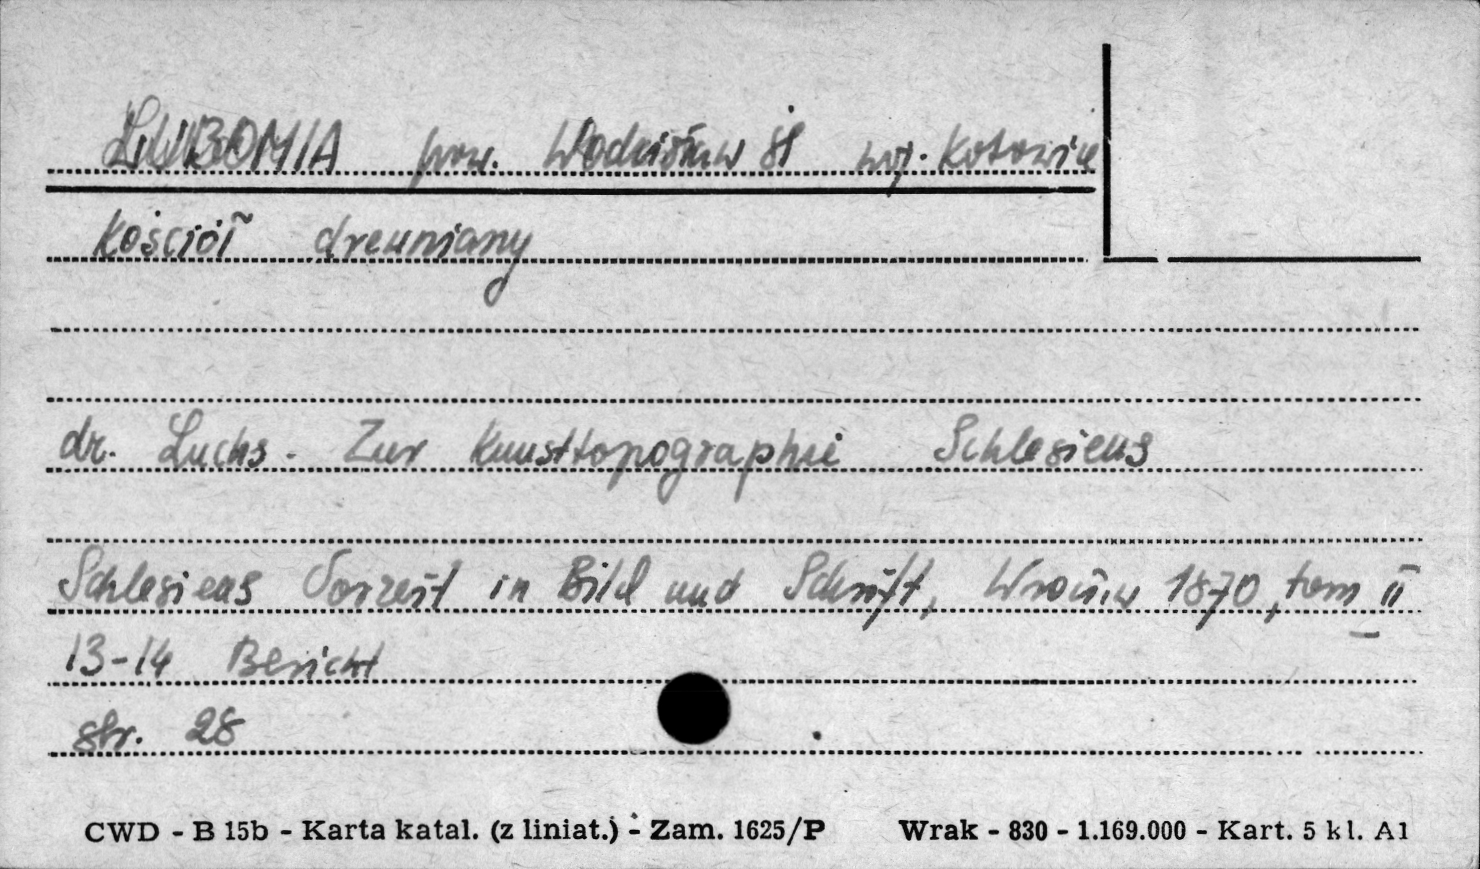 LUBOMIA pow. Wodzisław Śl woj. Katowice
Kościół drewniany
dr. Luchs. Zur Kunsttopographie Schlesiens
Schlesiens Vorzeit in Bild und Schrift, Wrocław 1870, tom II
13-14 Bericht
str. 28
CWD - B 15b - Karta katal. (z liniat.) - Zam. 1625/P Wrak - 830 - 1.169.000 - Kart. 5 kl. A1